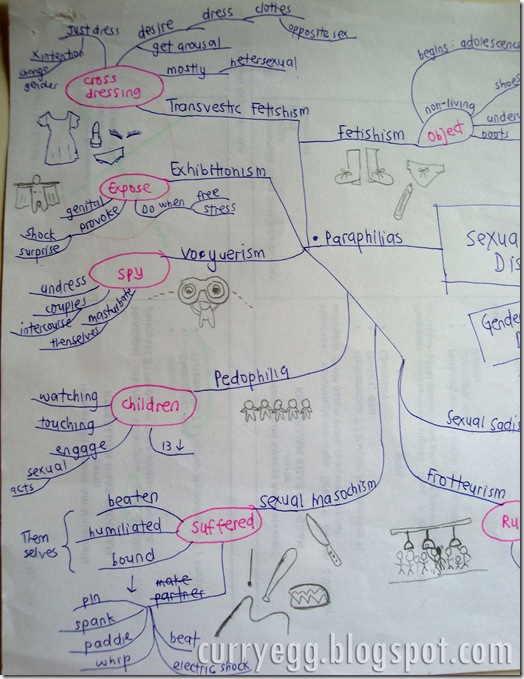 Just dress
desire
dress
clothes
opposite sex
get arousal
X intention
change
gender
mostly
hetersexual
cross
dressing
Transvestic Fetishism
begins: adolescence
non-living
shoes
underw
boots
Object
Fetishism
Exhibitionism
Expose
genital
provoke
shock
surprise
Do when
free
stress
• Paraphilias
Sexual
Dis
Gender
Voyuerism
spy
undress
couples
intercourse
masturbate
themselves
Pedophilia
children
watching
touching
engage
sexual
acts
13 ↓
Sexual Sadis
Frotteurism
Ru
Sexual Masochism
Suffered
beaten
humiliated
bound
Them
selves
make
partner
pin
spank
paddle
whip
beat
electric shock
curryegg.blogspot.com